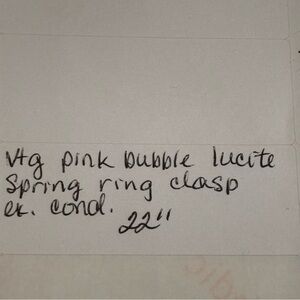 Vtg pink bubble lucite
Spring ring clasp
ex. cond.
22"